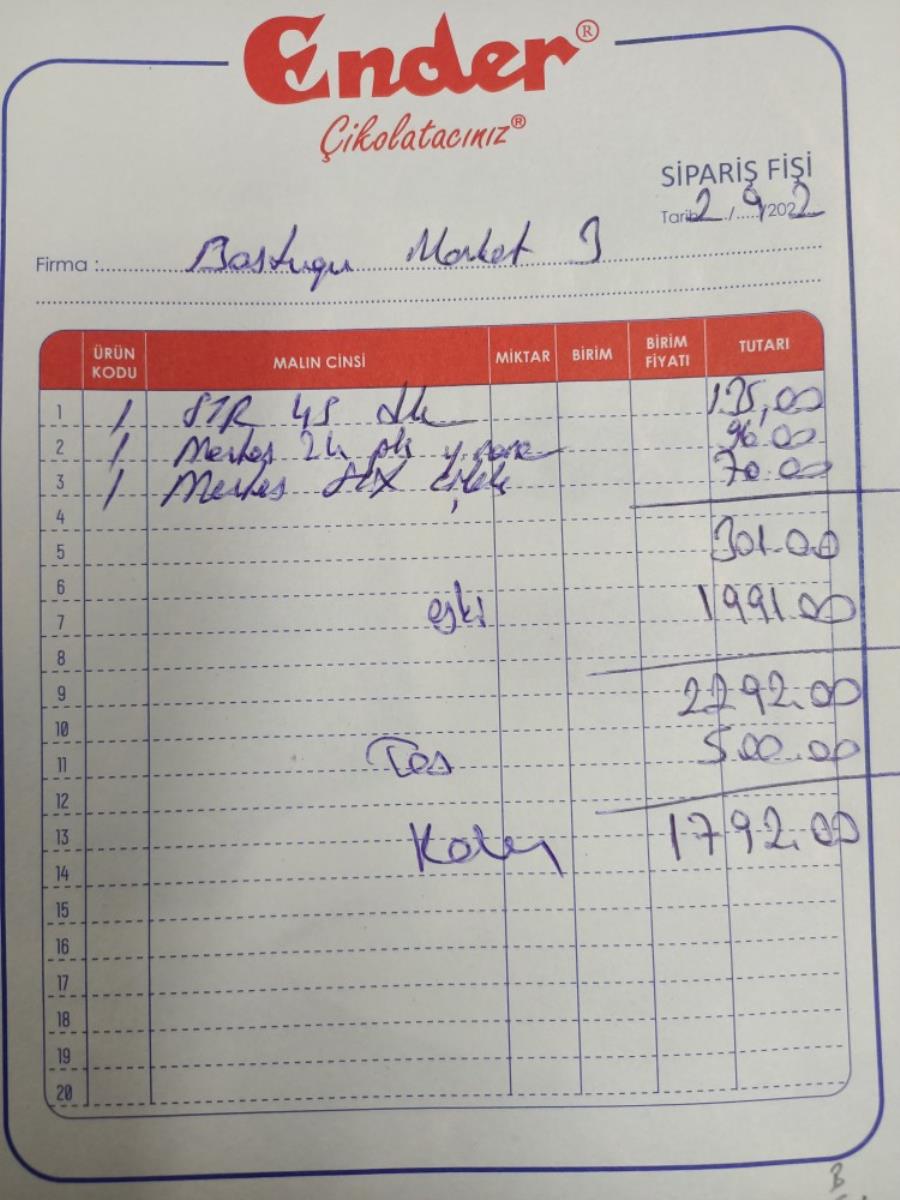 Ender®
Çikolatacınız®
SİPARİŞ FİŞİ
Tarih 2/9/2022
Firma : Bastugu Market 3
ÜRÜN KODU MALIN CİNSİ MİKTAR BİRİM BİRİM FİYATI TUTARI
1 1 STR 45 135,00
2 1 2k 96.00
3 1 70.00
4
5 301.00
6
7 eski 1991.00
8
9 2292.00
10
11 Tas 500.00
12
13 Kalan 1792.00
14
15
16
17
18
19
20
B